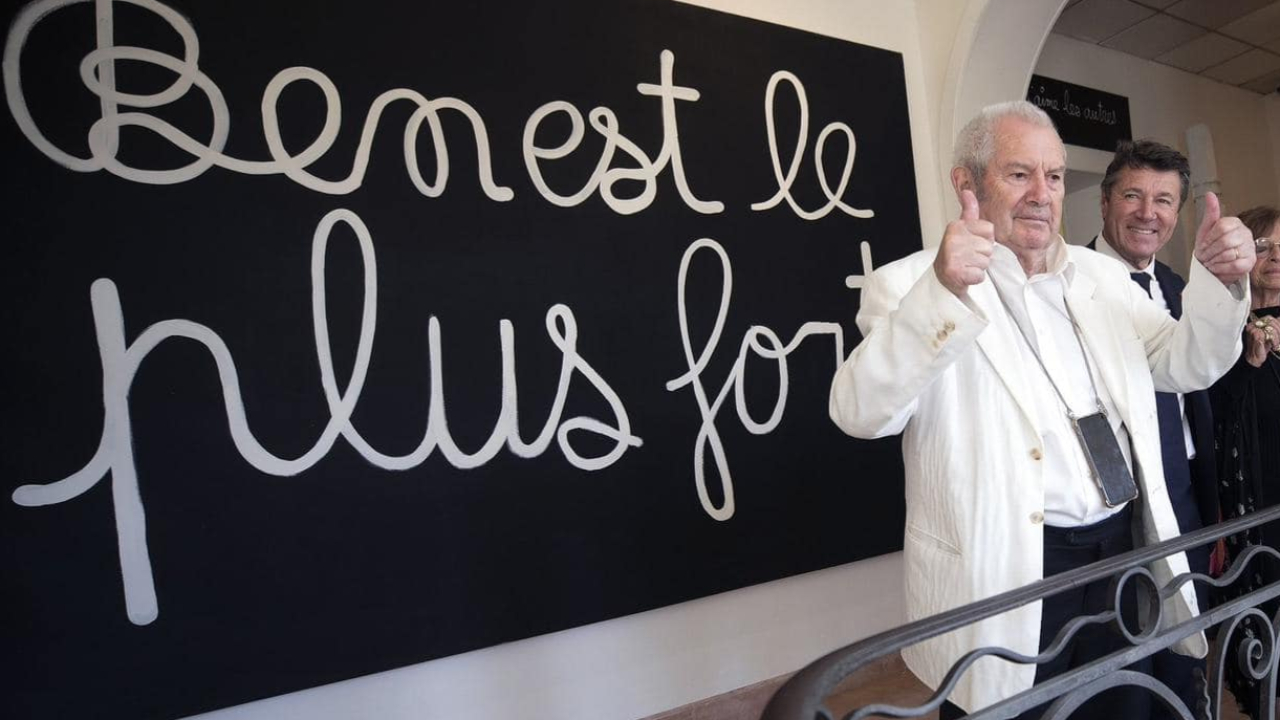 Ben est le
plus fort
j'aime les autres